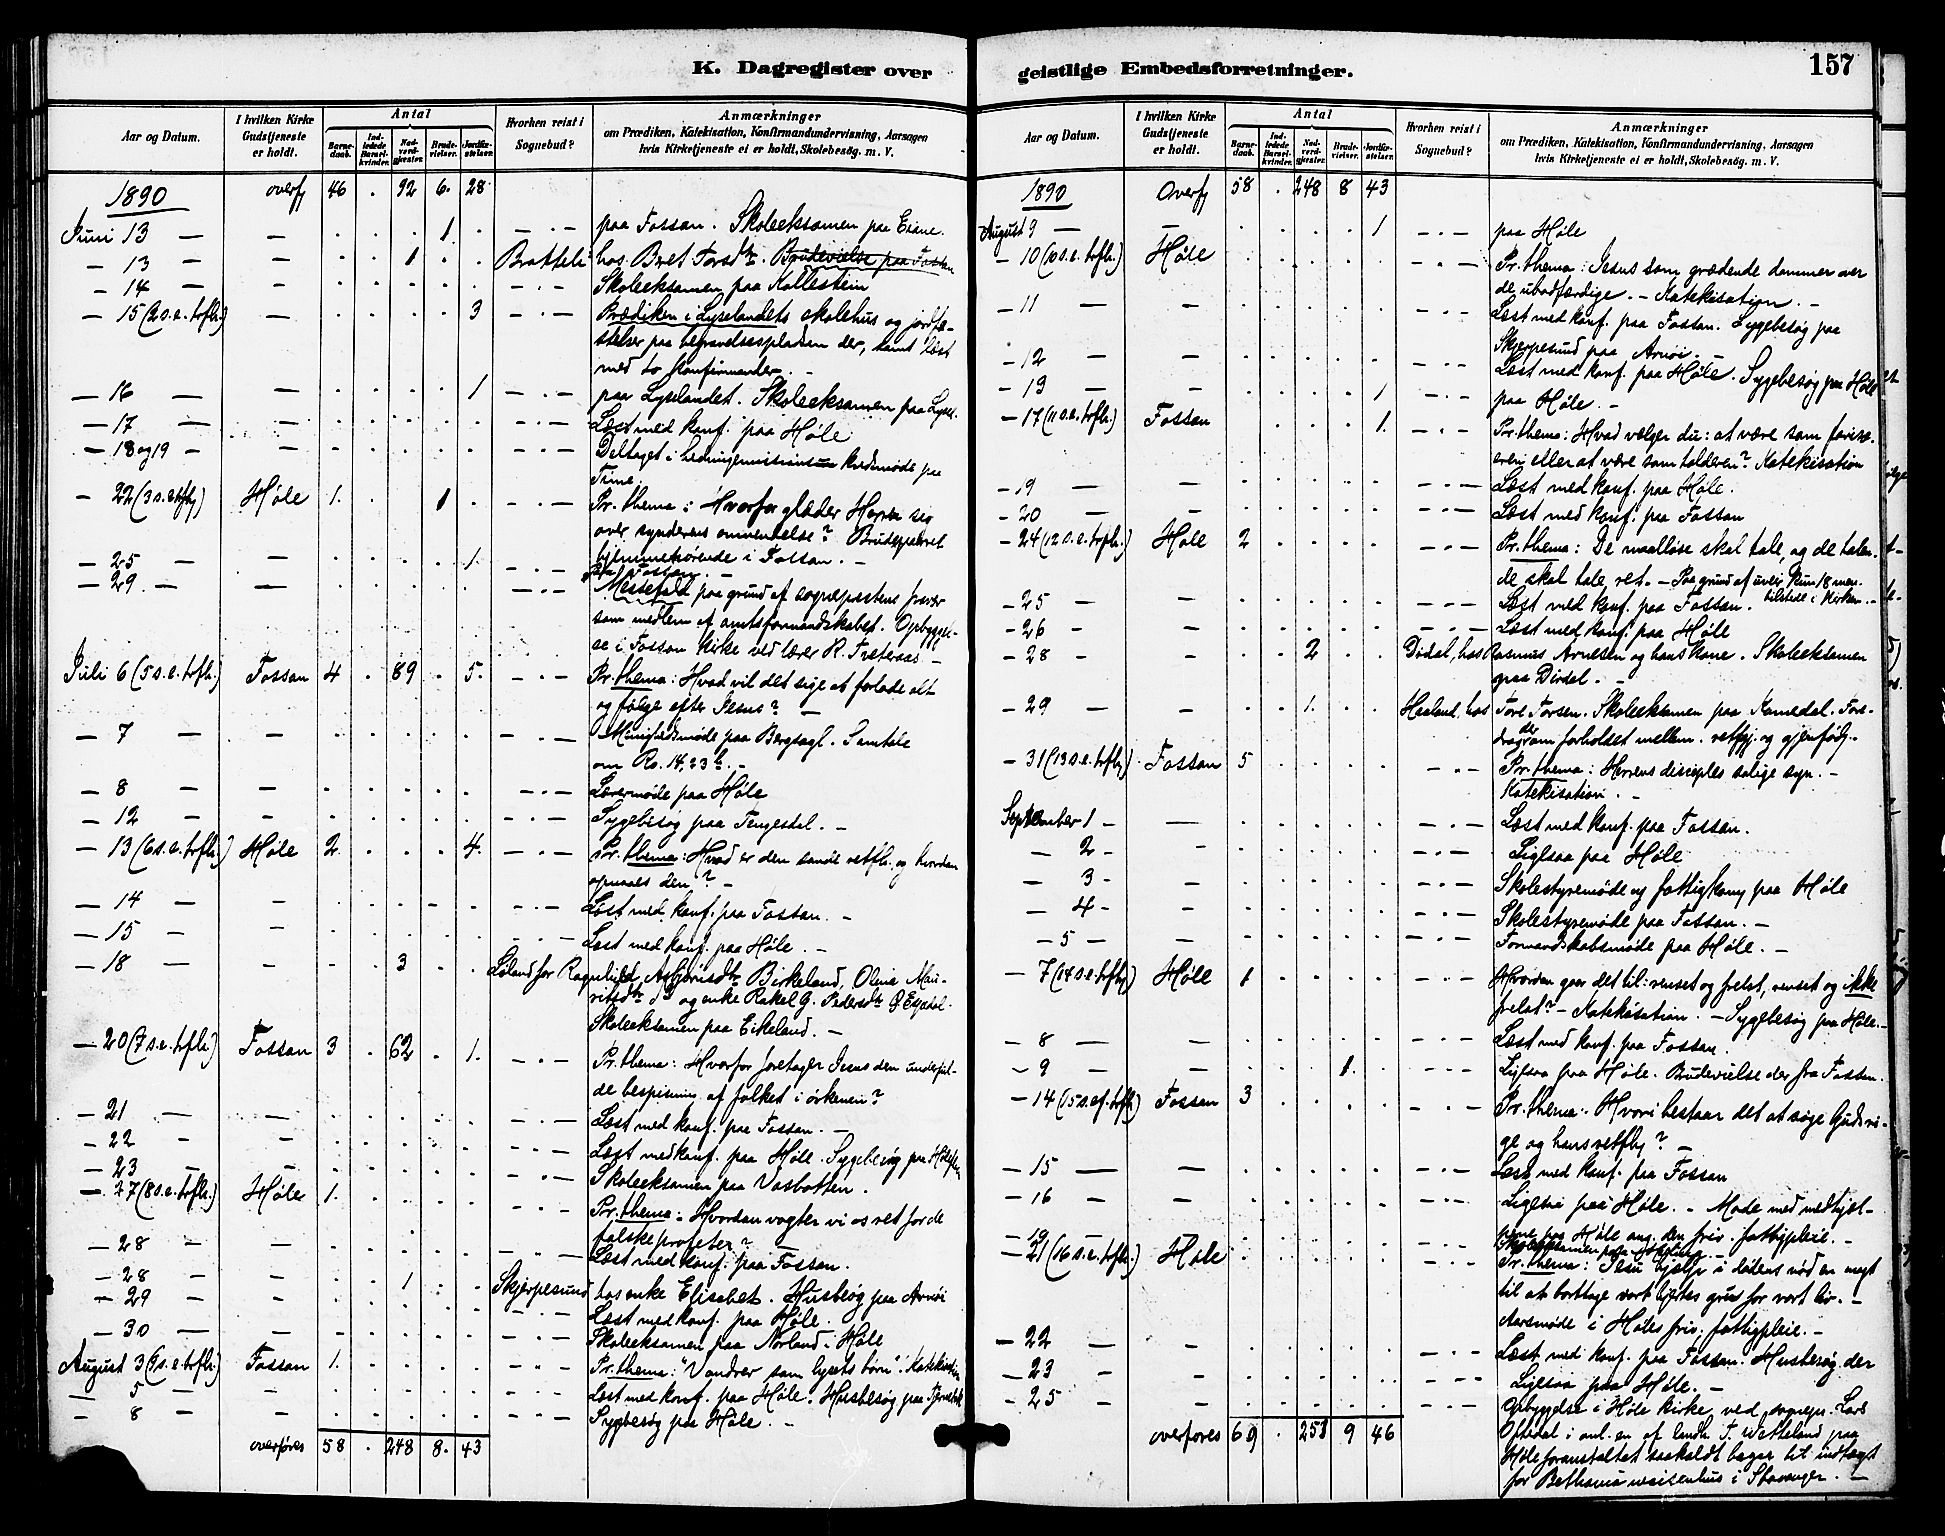 K. Dagregister over
Aar og Datum. I hvilken Kirke Gudstjeneste er holdt. Antal Barne-daab. Ind-ledede Barsel-kvinder. Nad-verd-gjester. Brude-vielser. Jordfæ-stelser. Hvorhen reist i Sognebud? Anmærkninger
om Prædiken, Katekisation, Konfirmandundervisning, Aarsagen
hvis Kirketjeneste ei er holdt, Skolebesøg. m. V.
1890 overf 46 . 92 6. 28.
Juni 13 — — 1 . paa Fossan. Skoleeksamen paa Eiane.
— 13 — — 1 . . Bratteli hos Bret Torsdtr. Brudevielse paa Fossan
— 14 — — Skoleeksamen paa Kallestein
— 15 (2 s. e. trfh.) — 3 — . — Prædiken i Lyselandets skolehus og jordfæ-
stelser paa begravelsespladsen der, samt læst
med to konfirmander. —
— 16 — — 1 — . — paa Lyselandet. Skoleeksamen paa Lysel.
— 17 — — Læst med konf. paa Høle
— 18 og 19 — — Deltaget i hedningemissionens kredsmøde paa
Time.
— 22 (3 s. e. trfh) Høle 1. 1 — . — Pr. thema: Hvorfor glæder Herren sig
over synderens omvendelse? Brudeparret
hjemmehørende i Fossan. —
— 25 — — 1. — . — paa Fossan. —
— 29 — — — . — Messefald paa grund af sognepræstens fravær
som medlem af amtsformandskabet. Opbyggel-
se i Fossan kirke ved lærer R. Tveteraas —
Juli 6 (5 s. e. trfh.) Fossan 4 . 89 . 5. — . — Pr. thema: Hvad vil det sige at forlade alt
og følge efter Jesus? —
— 7 — — — . — Menighedsmøde paa Bergsagl. Samtale
om Ro. 14, 23 b. —
— 8 — — — . — Lærermøde paa Høle
— 12 — — — . — Sygebesøg paa Tengesdal. —
— 13 (6 s. e. trfh.) Høle 2. 4. — . — Pr. thema: Hvad er den sande retfh. og hvordan
opnaaes den? —
— 14 — — — . — Læst med konf. paa Fossan. —
— 15 — — — . — Læst med konf. paa Høle. —
— 18 — — 3 . . Løland for Ragnhild Asbjørnsdtr Birkeland, Olina Mau-
ritsdtr do og enke Rakel G. Pedersdtr Ø Espedal.
Skoleeksamen paa Eikeland. —
— 20 (7 s. e. trfh.) Fossan 3 . 62 . 1. — . — Pr. thema: Hvorfor foretager Jesus den underful-
de bespisning af folket i ørkenen?
— 21 — — — . — Læst med konf. paa Fossan. —
— 22 — — — . — Læst med konf. paa Høle. Sygebesøg paa
— 23 — — — . — Skoleeksamen paa Vasbotten.
— 27 (8 s. e. trfh.) Høle 1. — . — Pr. thema: Hvordan vogter vi os ret for de
falske profeter? —
— 28 — — — . — Læst med konf. paa Fossan.
— 28 — — 1 . — Skjørpesund hos enke Elisabet. Husbesøg paa Arnøi
— 29 — — — . — Læst med konf. paa Høle.
— 30 — — — . — Skoleeksamen paa Norland i Høle
August 3 (9 s. e. trfh.) Fossan 1. — . — Pr. thema: "Vandrer som lysets børn". Katekisation
— 5 — — — . — Læst med konf. paa Høle. Husbesøg paa
— 8 — — — . — Sygebesøg paa Høle. —
overføres 58 . 248 8. 43
geistlige Embedsforretninger. 157
Aar og Datum. I hvilken Kirke Gudstjeneste er holdt. Antal Barne-daab. Ind-ledede Barsel-kvinder. Nad-verd-gjester. Brude-vielser. Jordfæ-stelser. Hvorhen reist i Sognebud? Anmærkninger
om Prædiken, Katekisation, Konfirmandundervisning, Aarsagen
hvis Kirketjeneste ei er holdt, Skolebesøg. m. V.
1890 Overf 58 . 248 8 43
August 9 — — 1 — . — paa Høle
— 10 (10 s. e. trfh.) Høle — . — Pr. thema: Jesus som grædende dommer over
de ubodfærdige. — Katekisation. —
— 11 — — — . — Læst med konf. paa Fossan. Sygebesøg paa
Skjørpesund paa Arnøi. —
— 12 — — Læst med konf. paa Høle. Sygebesøg paa Høle
— 13 — — 1 — . — paa Høle. —
— 17 (11 s. e. trfh.) Fossan 1. — . — Pr. thema: Hvad vælger du: at være som farisæ-
eren eller at være som tolderen? Katekisation
— 19 — — — . — Læst med konf. paa Høle.
— 20 — — — . — Læst med konf. paa Fossan
— 24 (12 s. e. trfh.) Høle 2 — . — Pr. thema: De maalløse skal tale, og de talen-
de skal tale ret. — Paa grund af uveir kun 18 men.
tilstede i kirken. —
— 25 — — — . — Læst med konf. paa Fossan.
— 26 — — — . — Læst med konf. paa Høle
— 28 — — 2 . . Dirdal, hos Rasmus Arnesen og hans kone. Skoleeksamen
paa Dirdal. —
— 29 — — 1. . . Haaland, hos Tore Torsen. Skoleeksamen paa Ramedal. Fore-
drag om forholdet mellem retfgj. og gjenfødg. —
— 31 (13 s. e. trfh) Fossan 5 — . — Pr. thema: Herrens disciples salige syn. —
Katekisation. —
September 1 — — — . — Læst med konf. paa Fossan.
— 2 — — — . — Ligesaa paa Høle
— 3 — — — . — Skolestyremøde og fattigkom. paa Høle
— 4 — — — . — Skolestyremøde paa Fossan. —
— 5 — — — . — Formandskabsmøde paa Høle. —
— 7 (14 s. e. trfh) Høle 1 — . — Hvordan gaar det til: renset og frelst, renset og ikke
frelst? — Katekisation. — Sygebesøg paa Høle. —
— 8 — — — . — Læst med konf. paa Fossan.
— 9 — — 1. — . — Ligesaa paa Høle. Brudevielse der fra Fossan.
— 14 (15 s. ef. trfh) Fossan 3 — . — Pr. thema: Hvori bestaar det at søge Guds ri-
ge og hans retfh? —
— 15 — — — . — Læst med konf. paa Fossan
— 16 — — — . — Ligesaa paa Høle. — Møde med medhjæl-
perne paa Høle ang. den friv. fattigpleie. —
— 19 — — Skoleeksamen paa
— 21 (16 s. e. trfh.) Høle — . — Pr. thema: Jesu hjælp i dødens nød en magt
til at borttage vort hjertes gru for vort liv. —
Aarsmøde i Høles friv. fattigpleie. —
— 22 — — — . — Læst med konf. paa Fossan. Husbesøg der
— 23 — — — . — Ligesaa paa Høle. —
— 25 — — — . — Opbyggelse i Høle kirke ved sognepr. Lars
Oftedal i anl. en af landh. T. Watteland paa
Høle foranstaltet saakaldt bazar til indtægt
for Bethania waisenhus i Stavanger. —
overføres 69 . 251 9 46